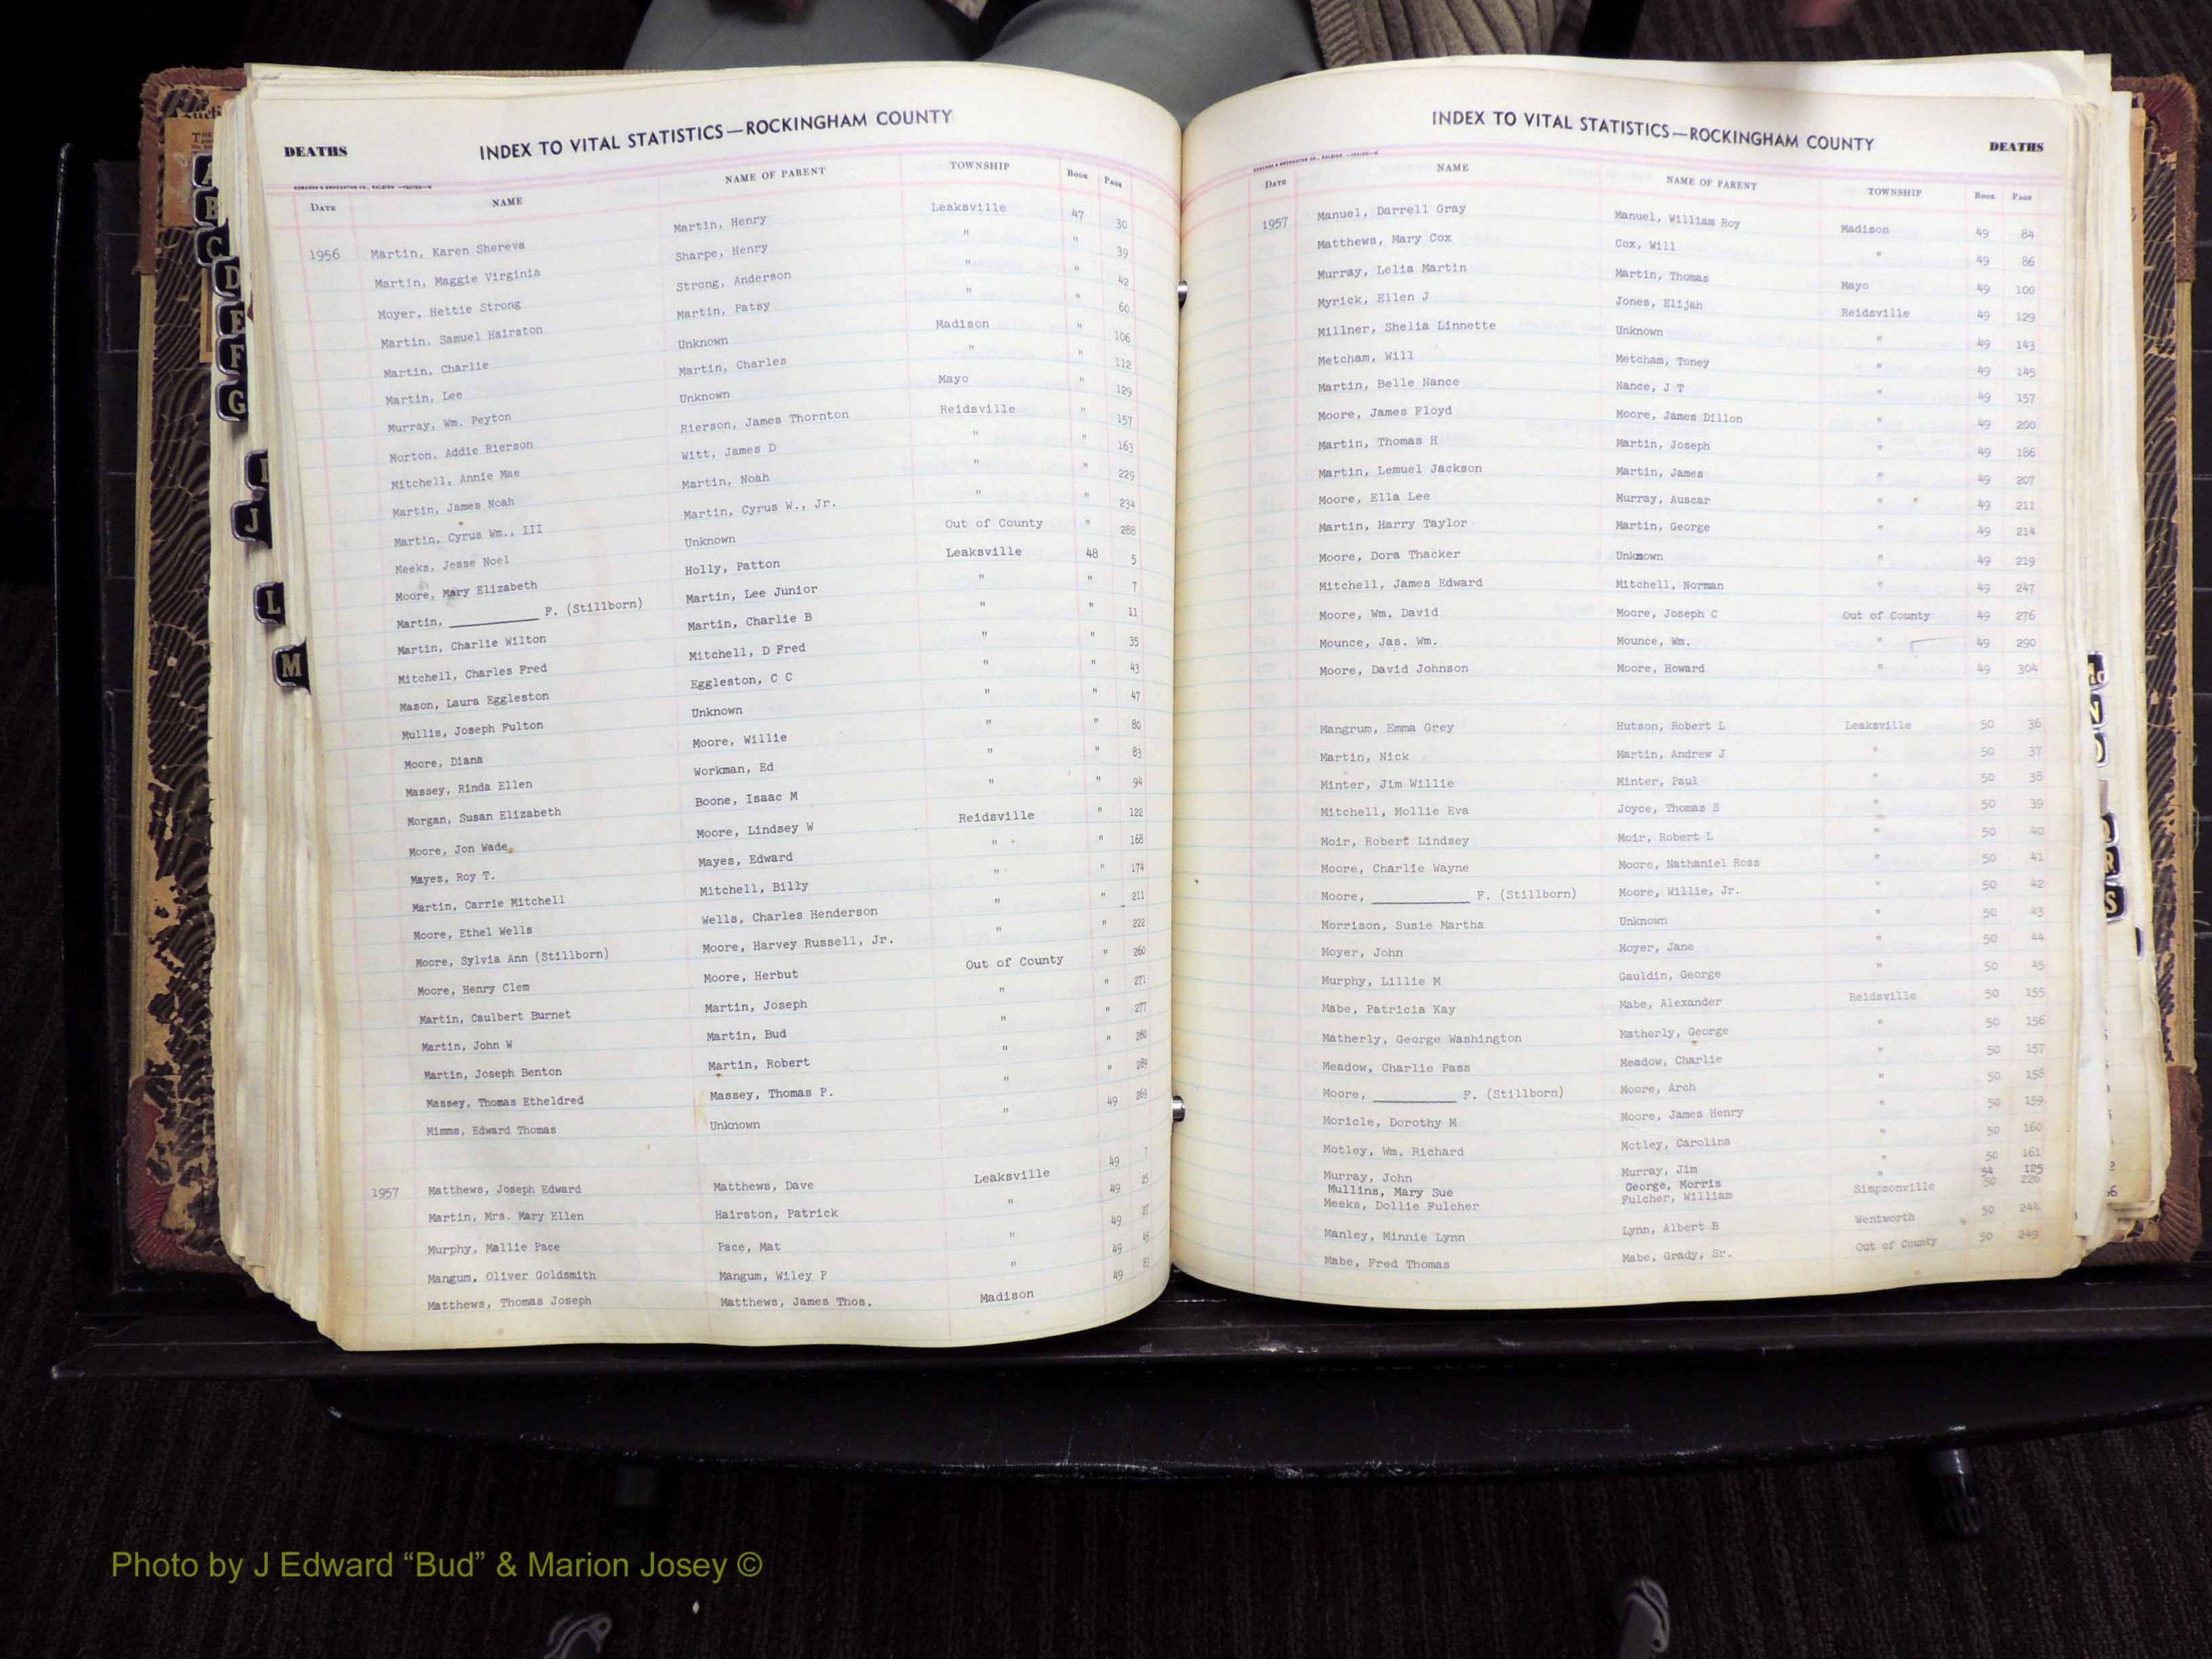 DEATHS INDEX TO VITAL STATISTICS—ROCKINGHAM COUNTY
EDWARDS & BROUGHTON CO., RALEIGH
DATE NAME NAME OF PARENT TOWNSHIP Book Page
1956 Martin, Karen Shereva Martin, Henry Leaksville 47 30
Martin, Maggie Virginia Sharpe, Henry " " 39
Moyer, Hettie Strong Strong, Anderson " " 42
Martin, Samuel Hairston Martin, Patsy " " 60
Martin, Charlie Unknown Madison " 106
Martin, Lee Martin, Charles " " 112
Murray, Wm. Peyton Unknown Mayo " 129
Morton, Addie Rierson Rierson, James Thornton Reidsville " 157
Mitchell, Annie Mae Witt, James D " " 163
Martin, James Noah Martin, Noah " " 229
Martin, Cyrus Wm., III Martin, Cyrus W., Jr. " " 234
Meeks, Jesse Noel Unknown Out of County " 288
Moore, Mary Elizabeth Holly, Patton Leaksville 48 5
Martin, __________ F. (Stillborn) Martin, Lee Junior " " 7
Martin, Charlie Wilton Martin, Charlie B " " 11
Mitchell, Charles Fred Mitchell, D Fred " " 35
Mason, Laura Eggleston Eggleston, C C " " 43
Mullis, Joseph Fulton Unknown " " 47
Moore, Diana Moore, Willie " " 80
Massey, Rinda Ellen Workman, Ed " " 83
Morgan, Susan Elizabeth Boone, Isaac M " " 94
Moore, Jon Wade Moore, Lindsey W Reidsville " 122
Mayes, Roy T. Mayes, Edward " " 168
Martin, Carrie Mitchell Mitchell, Billy " " 174
Moore, Ethel Wells Wells, Charles Henderson " " 211
Moore, Sylvia Ann (Stillborn) Moore, Harvey Russell, Jr. " " 222
Moore, Henry Clem Moore, Herbut Out of County " 260
Martin, Caulbert Burnet Martin, Joseph " " 271
Martin, John W Martin, Bud " " 277
Martin, Joseph Benton Martin, Robert " " 280
Massey, Thomas Etheldred Massey, Thomas P. " " 289
Mimms, Edward Thomas Unknown " 49 269
1957 Matthews, Joseph Edward Matthews, Dave Leaksville 49 7
Martin, Mrs. Mary Ellen Hairston, Patrick " 49 25
Murphy, Mallie Pace Pace, Mat " 49 27
Mangum, Oliver Goldsmith Mangum, Wiley P " 49 45
Matthews, Thomas Joseph Matthews, James Thos. Madison 49 83
INDEX TO VITAL STATISTICS—ROCKINGHAM COUNTY DEATHS
EDWARDS & BROUGHTON CO., RALEIGH
DATE NAME NAME OF PARENT TOWNSHIP Book Page
1957 Manuel, Darrell Gray Manuel, William Roy Madison 49 84
Matthews, Mary Cox Cox, Will " 49 86
Murray, Lelia Martin Martin, Thomas Mayo 49 100
Myrick, Ellen J Jones, Elijah Reidsville 49 129
Millner, Shelia Linnette Unknown " 49 143
Metcham, Will Metcham, Toney " 49 145
Martin, Belle Nance Nance, J T " 49 157
Moore, James Floyd Moore, James Dillon " 49 200
Martin, Thomas H Martin, Joseph " 49 186
Martin, Lemuel Jackson Martin, James " 49 207
Moore, Ella Lee Murray, Auscar " 49 211
Martin, Harry Taylor Martin, George " 49 214
Moore, Dora Thacker Unknown " 49 219
Mitchell, James Edward Mitchell, Norman " 49 247
Moore, Wm. David Moore, Joseph C Out of County 49 276
Mounce, Jas. Wm. Mounce, Wm. " 49 290
Moore, David Johnson Moore, Howard " 49 304
Mangrum, Emma Grey Hutson, Robert L Leaksville 50 36
Martin, Nick Martin, Andrew J " 50 37
Minter, Jim Willie Minter, Paul " 50 38
Mitchell, Mollie Eva Joyce, Thomas S " 50 39
Moir, Robert Lindsey Moir, Robert L " 50 40
Moore, Charlie Wayne Moore, Nathaniel Ross " 50 41
Moore, __________ F. (Stillborn) Moore, Willie, Jr. " 50 42
Morrison, Susie Martha Unknown " 50 43
Moyer, John Moyer, Jane " 50 44
Murphy, Lillie M Gauldin, George " 50 45
Mabe, Patricia Kay Mabe, Alexander Reidsville 50 155
Matherly, George Washington Matherly, George " 50 156
Meadow, Charlie Pass Meadow, Charlie " 50 157
Moore, __________ F. (Stillborn) Moore, Arch " 50 158
Moricle, Dorothy M Moore, James Henry " 50 159
Motley, Wm. Richard Motley, Carolina " 50 160
Murray, John Murray, Jim " 50 161
Mullins, Mary Sue George, Morris " 54 125
Meeks, Dollie Fulcher Fulcher, William Simpsonville 50 226
Manley, Minnie Lynn Lynn, Albert B Wentworth 50 244
Mabe, Fred Thomas Mabe, Grady, Sr. Out of County 50 249
A
B
C
D
E
F
G
J
L
M
N
R
S
Photo by J Edward “Bud” & Marion Josey ©